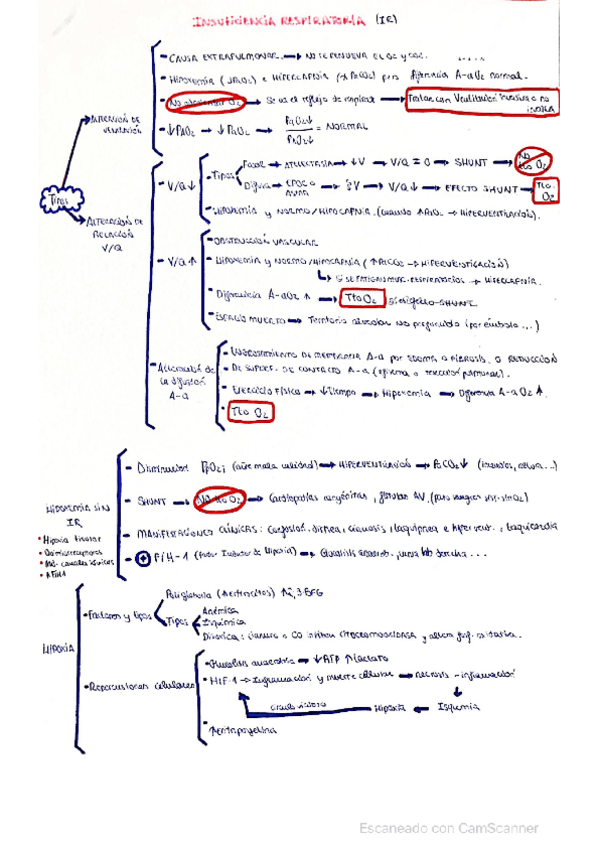 INSUFICIENCIA RESPIRATORIA (IR)
- CAUSA EXTRAPULMONAR → NO SE RENUEVA EL O2 y CO2.
- HIPOXEMIA (↓PaO2) e HIPERCAPNIA (↑PaCO2) pero diferencia A-aO2 normal.
- No O2 → Se va el reflejo de respirar → Tratar con Ventilación invasiva o no invasiva
- ↓PAO2 → ↓PaO2 → PaO2↓ / PAO2↓ = NORMAL
ALTERACIÓN DE VENTILACIÓN
Tipos
ALTERACIÓN DE RELACIÓN V/Q
- V/Q ↓
- Tipos
→ ATELECTASIA → ↓V → V/Q = 0 → SHUNT → No tto O2
Difusa → EPOC o → ↓V → V/Q ↓ → EFECTO SHUNT → Tto. O2
- HIPOXEMIA y NORMO/HIPOCAPNIA (cuando → HIPERVENTILACIÓN).
- V/Q ↑
- OBSTRUCCIÓN VASCULAR
- HIPOXEMIA y NORMO/HIPOCAPNIA (↑ → HIPERVENTILACIÓN)
↳ SI SE FATIGAN MUSC. RESPIRATORIOS → HIPERCAPNIA.
- Diferencia A-aO2 ↑ → Tto O2
- ESPACIO MUERTO → Territorio alveolar no prefundido (por émbolo ...)
ALTERACIÓN DE la difusión A-a
- ENGROSAMIENTO DE MEMBRANA A-a por EDEMA o FIBROSIS, o REDUCCIÓN
- DE SUPERF. DE CONTACTO A-a (enfisema o resección pulmonar).
- Ejercicio Físico → ↓Tiempo → Hipoxemia → Diferencia A-aO2 ↑.
- Tto O2
HIPOXEMIA SIN IR
• Hipoxia tisular
• Quimiorreceptores
• canales iónicos
- Disminución (aire mala calidad) → HIPERVENTILACIÓN → PaCO2↓ (incendios, altura...)
- SHUNT → No tto O2 → Cardiopatías congénitas, fístulas AV.
- MANIFESTACIONES CLÍNICAS: Confusión, disnea, cianosis, taquipnea e hipervent., taquicardia
- ⊕ FIH-1 (Factor Inducible de Hipoxia) → Glucólisis anaerob., ...
HIPOXIA
- Factores y tipos
Poliglobulia (↑eritrocitos) ↑2,3-BFG
Tipos
Anémica
Isquémica
Disóxica: cianuro o CO inhiben citocromooxidasa y alteran fosf. oxidativa.
- Repercusiones celulares
- Glucólisis anaerobia → ↓ATP ↑lactato
- HIF-1 → Inflamación y muerte celular → necrosis - inflamación
Círculo vicioso ← Hipoxia ← Isquemia
- ↑eritropoyetina
Escaneado con CamScanner